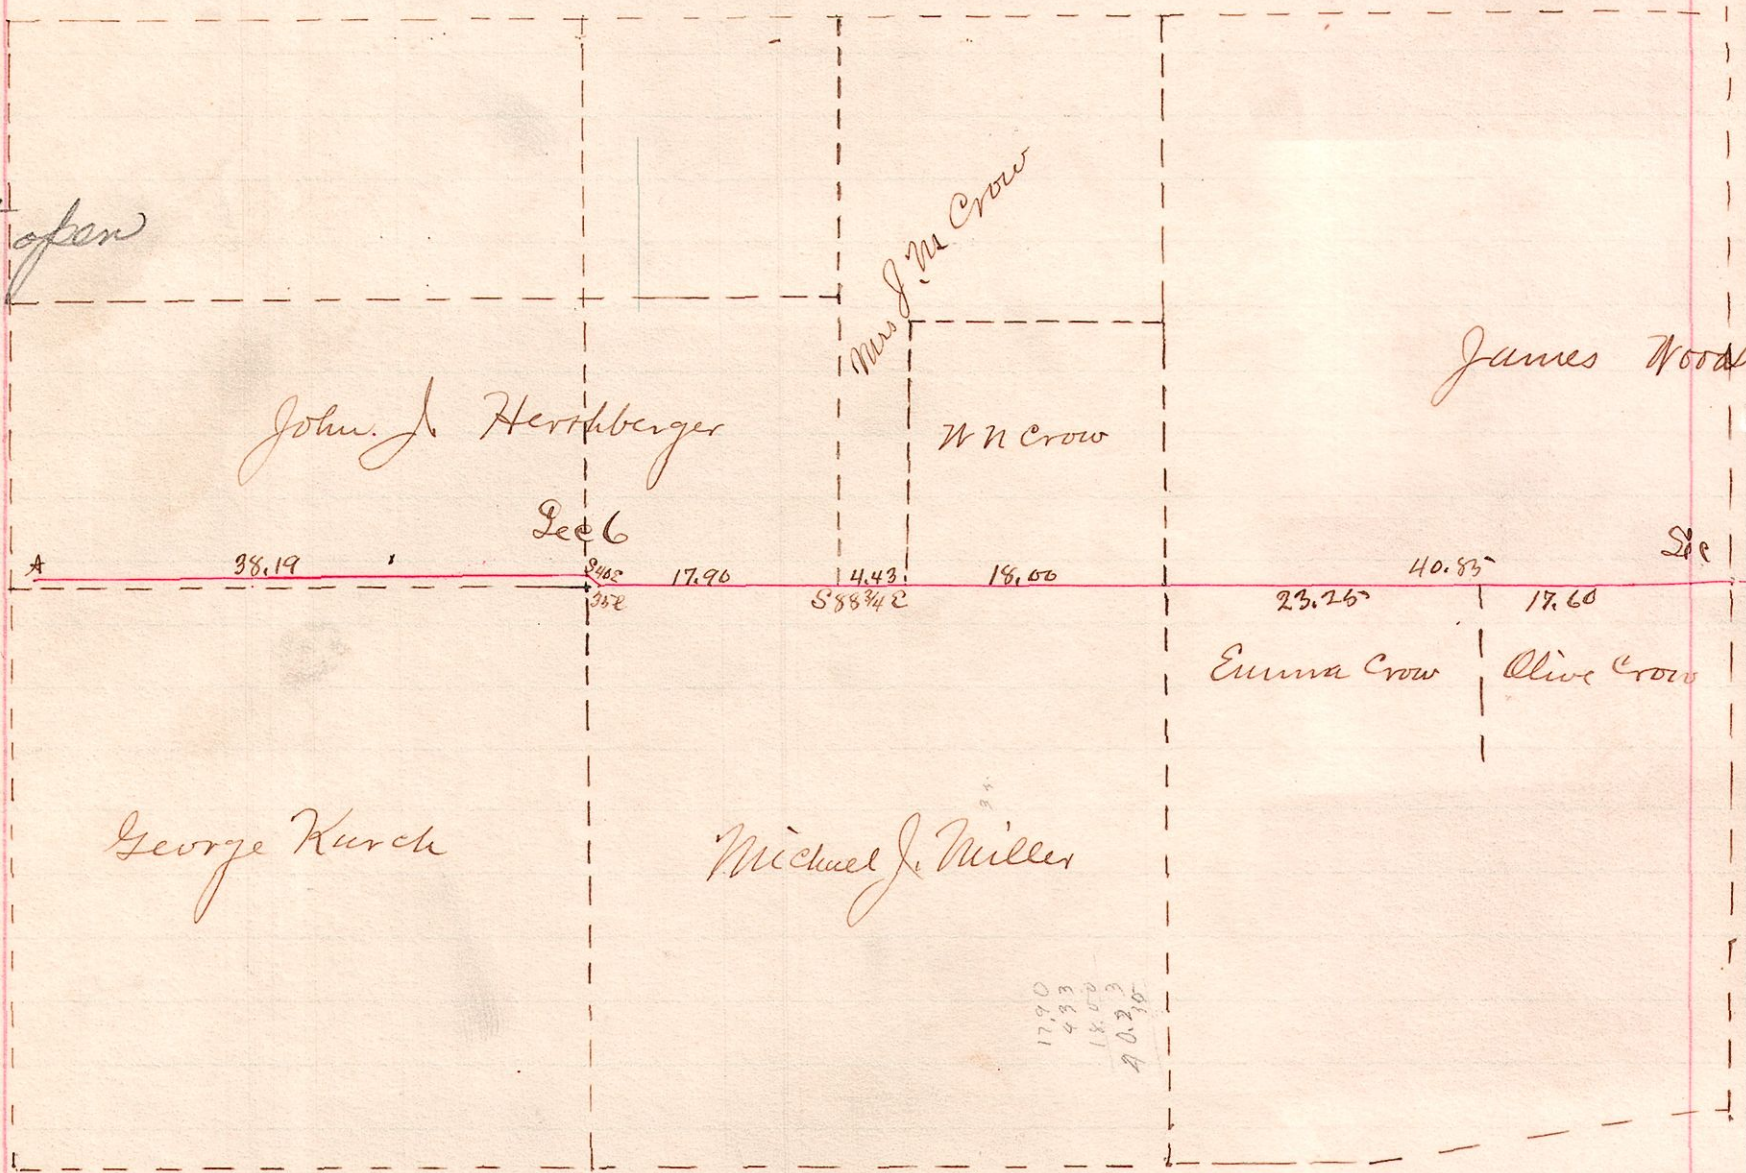 open
Mrs J. M Crow
James Woods
John. J Hershberger
W N Crow
Sec 6
Sec
A
38.19
S40E
17.90
4.43
18.00
40.85
35
S88¾E
23.25
17.60
Emma Crow
Olive Crow
George Kurch
Michael J. Miller
35
17.90
433
18.00
40.23
35